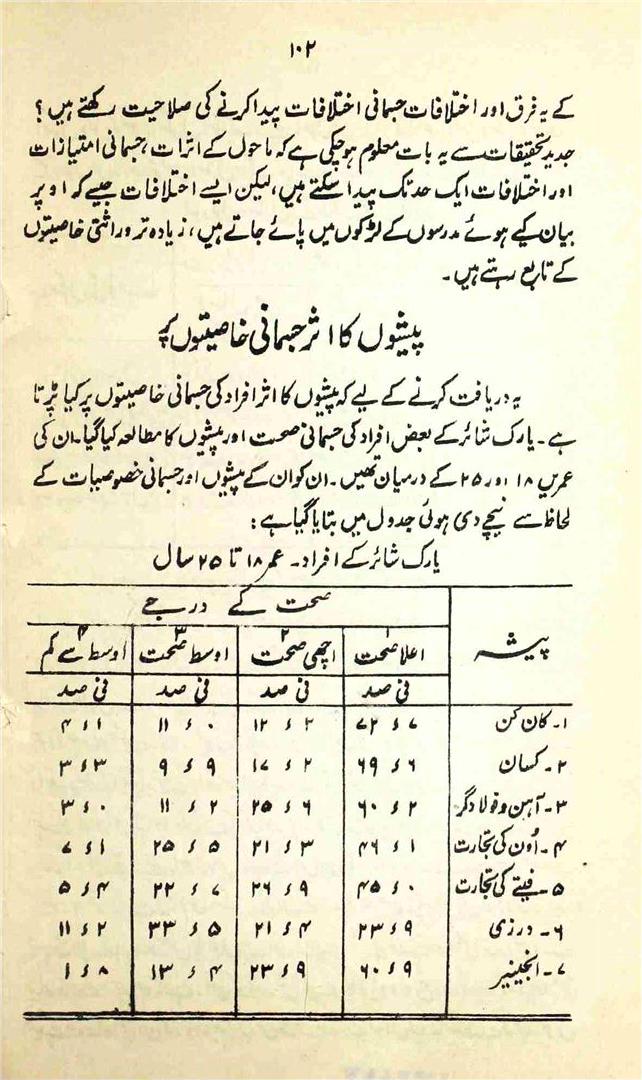 ۱۰۲
کے یہ فرق اور اختلافات جسمانی اختلافات پیدا کرنے کی صلاحیت رکھتے ہیں؟
جدید تحقیقات سے یہ بات معلوم ہو چکی ہے کہ ماحول کے اثرات، جسمانی امتیازات
اور اختلافات ایک حد تک پیدا سکتے ہیں، لیکن ایسے اختلافات جیسے کہ اوپر
بیان کیے ہوئے مدرسوں کے لڑکوں میں پائے جاتے ہیں، زیادہ تر وراثتی خاصیتوں
کے تابع رہتے ہیں۔
پیشوں کا اثر جسمانی خاصیتوں پر
یہ دریافت کرنے کے لیے کہ پیشوں کا اثر افراد کی جسمانی خاصیتوں پر کیا پڑتا
ہے۔ یارک شائر کے بعض افراد کی جسمانی صحت اور پیشوں کا مطالعہ کیا گیا۔ ان کی
عمریں ۱۸ اور ۲۵ کے درمیان تھیں۔ ان کو ان کے پیشوں اور جسمانی خصوصیات کے
لحاظ سے نیچے دی ہوئی جدول میں بتایا گیا ہے:
یارک شائر کے افراد۔ عمر ۱۸ تا ۲۵ سال
صحت کے درجے
پیشہ ۱ اعلا صحت ۲ اچھی صحت ۳ اوسط صحت ۴ اوسط سے کم
فی صد فی صد فی صد فی صد
۱۔ کان کن ۷ء۷۲ ۲ء۱۲ ۰ء۱۱ ۱ء۴
۲۔ کسان ۶ء۶۹ ۲ء۱۷ ۹ء۹ ۳ء۳
۳۔ آہن و فولاد گر ۲ء۶۰ ۶ء۲۵ ۲ء۱۱ ۰ء۳
۴۔ اُون کی تجارت ۱ء۴۶ ۳ء۲۱ ۵ء۲۵ ۱ء۷
۵۔ فیتے کی تجارت ۰ء۴۵ ۹ء۲۶ ۷ء۲۲ ۴ء۵
۶۔ درزی ۹ء۲۳ ۴ء۲۱ ۵ء۳۳ ۲ء۱۱
۷۔ انجینیر ۹ء۶۰ ۹ء۲۳ ۴ء۱۳ ۸ء۱